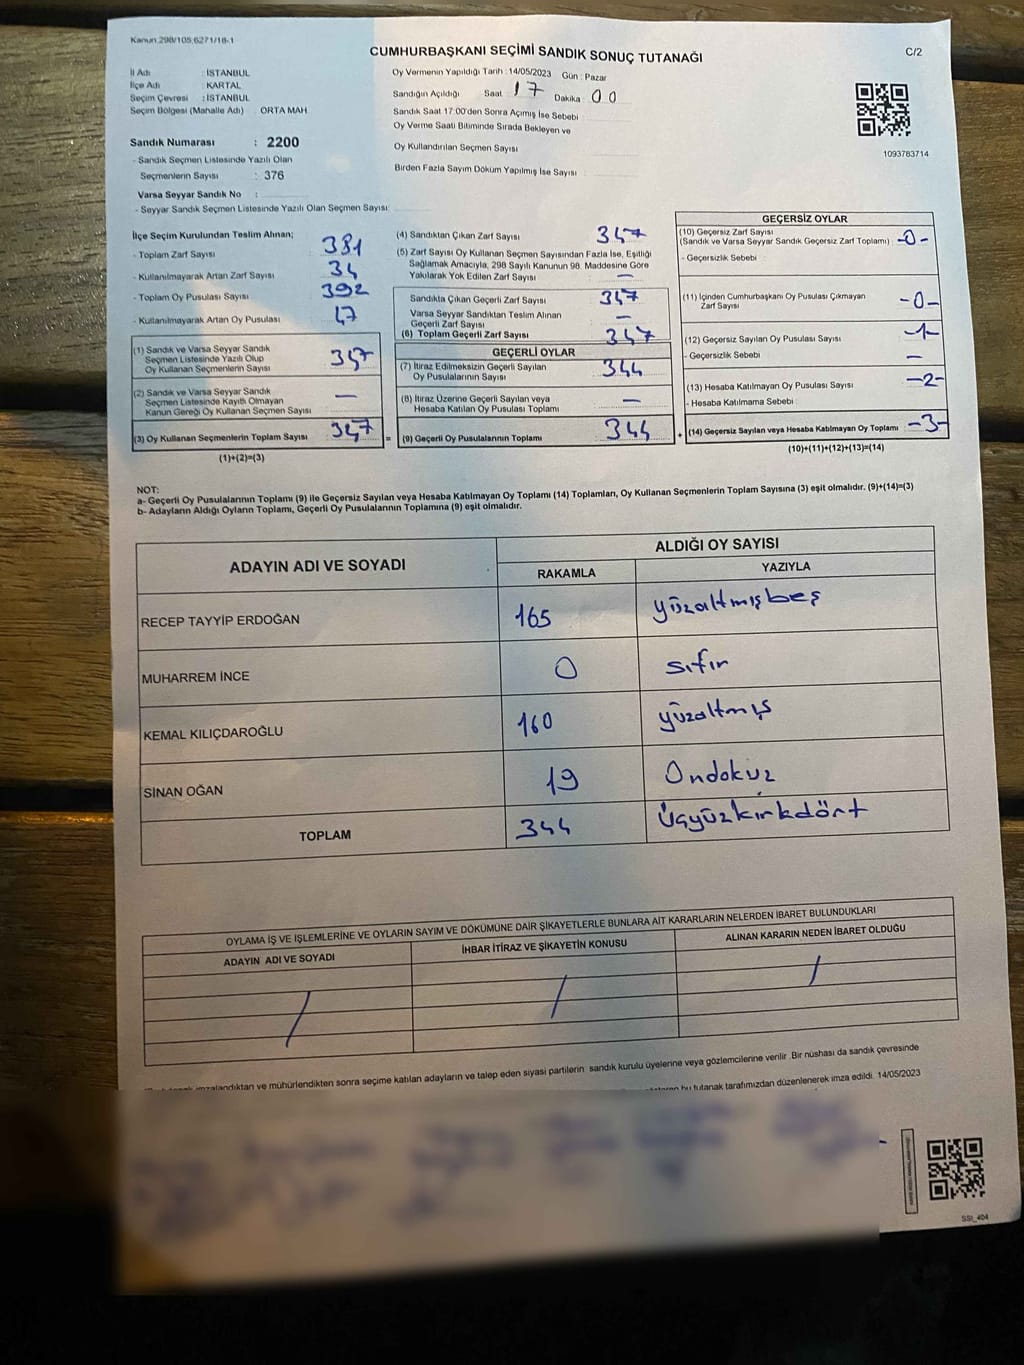 Kanun:298/105;6271/16-1
CUMHURBAŞKANI SEÇİMİ SANDIK SONUÇ TUTANAĞI
C/2
İl Adı : İSTANBUL
İlçe Adı : KARTAL
Seçim Çevresi : İSTANBUL
Seçim Bölgesi (Mahalle Adı) ORTA MAH
Sandık Numarası : 2200
- Sandık Seçmen Listesinde Yazılı Olan
Seçmenlerin Sayısı : 376
Varsa Seyyar Sandık No :
- Seyyar Sandık Seçmen Listesinde Yazılı Olan Seçmen Sayısı:
Oy Vermenin Yapıldığı Tarih : 14/05/2023 Gün : Pazar
Sandığın Açıldığı Saat : 17 Dakika : 00
Sandık Saat 17:00'den Sonra Açımış İse Sebebi
Oy Verme Saati Bitiminde Sırada Bekleyen ve
Oy Kullandırılan Seçmen Sayısı
Birden Fazla Sayım Döküm Yapılmış İse Sayısı :
1093763714
İlçe Seçim Kurulundan Teslim Alınan;
- Toplam Zarf Sayısı 381
- Kullanılmayarak Artan Zarf Sayısı 34
- Toplam Oy Pusulası Sayısı 392
- Kullanılmayarak Artan Oy Pusulası 47
(1) Sandık ve Varsa Seyyar Sandık
Seçmen Listesinde Yazılı Olup
Oy Kullanan Seçmenlerin Sayısı 347
(2) Sandık ve Varsa Seyyar Sandık
Seçmen Listesinde Kayıtlı Olmayan
Kanun Gereği Oy Kullanan Seçmen Sayısı —
(3) Oy Kullanan Seçmenlerin Toplam Sayısı 347 =
(1)+(2)=(3)
(4) Sandıktan Çıkan Zarf Sayısı 347
(5) Zarf Sayısı Oy Kullanan Seçmen Sayısından Fazla İse, Eşitliği
Sağlamak Amacıyla, 298 Sayılı Kanunun 98. Maddesine Göre
Yakılarak Yok Edilen Zarf Sayısı —
Sandıkta Çıkan Geçerli Zarf Sayısı 347
Varsa Seyyar Sandıktan Teslim Alınan
Geçerli Zarf Sayısı —
(6) Toplam Geçerli Zarf Sayısı 347
GEÇERLİ OYLAR
(7) İtiraz Edilmeksizin Geçerli Sayılan
Oy Pusulalarının Sayısı 344
(8) İtiraz Üzerine Geçerli Sayılan veya
Hesaba Katılan Oy Pusulası Toplamı —
(9) Geçerli Oy Pusulalarının Toplamı 344 +
GEÇERSİZ OYLAR
(10) Geçersiz Zarf Sayısı
(Sandık ve Varsa Seyyar Sandık Geçersiz Zarf Toplamı) -0-
- Geçersizlik Sebebi :
(11) İçinden Cumhurbaşkanı Oy Pusulası Çıkmayan
Zarf Sayısı -0-
(12) Geçersiz Sayılan Oy Pusulası Sayısı -1-
- Geçersizlik Sebebi —
(13) Hesaba Katılmayan Oy Pusulası Sayısı -2-
- Hesaba Katılmama Sebebi :
(14) Geçersiz Sayılan veya Hesaba Katılmayan Oy Toplamı -3-
(10)+(11)+(12)+(13)=(14)
NOT:
a- Geçerli Oy Pusulalarının Toplamı (9) ile Geçersiz Sayılan veya Hesaba Katılmayan Oy Toplamı (14) Toplamları, Oy Kullanan Seçmenlerin Toplam Sayısına (3) eşit olmalıdır. (9)+(14)=(3)
b- Adayların Aldığı Oyların Toplamı, Geçerli Oy Pusulalarının Toplamına (9) eşit olmalıdır.
ADAYIN ADI VE SOYADI
ALDIĞI OY SAYISI
RAKAMLA YAZIYLA
RECEP TAYYİP ERDOĞAN 165 yüzaltmışbeş
MUHARREM İNCE 0 sıfır
KEMAL KILIÇDAROĞLU 160 yüzaltmış
SİNAN OĞAN 19 Ondokuz
TOPLAM 344 Üçyüzkırkdört
OYLAMA İŞ VE İŞLEMLERİNE VE OYLARIN SAYIM VE DÖKÜMÜNE DAİR ŞİKAYETLERLE BUNLARA AİT KARARLARIN NELERDEN İBARET BULUNDUKLARI
ADAYIN ADI VE SOYADI İHBAR İTİRAZ VE ŞİKAYETİN KONUSU ALINAN KARARIN NEDEN İBARET OLDUĞU
/ / /
imzalandıktan ve mühürlendikten sonra seçime katılan adayların ve talep eden siyasi partilerin sandık kurulu üyelerine veya gözlemcilerine verilir. Bir nüshası da sandık çevresinde
bu tutanak tarafımızdan düzenlenerek imza edildi. 14/05/2023
SSI_404